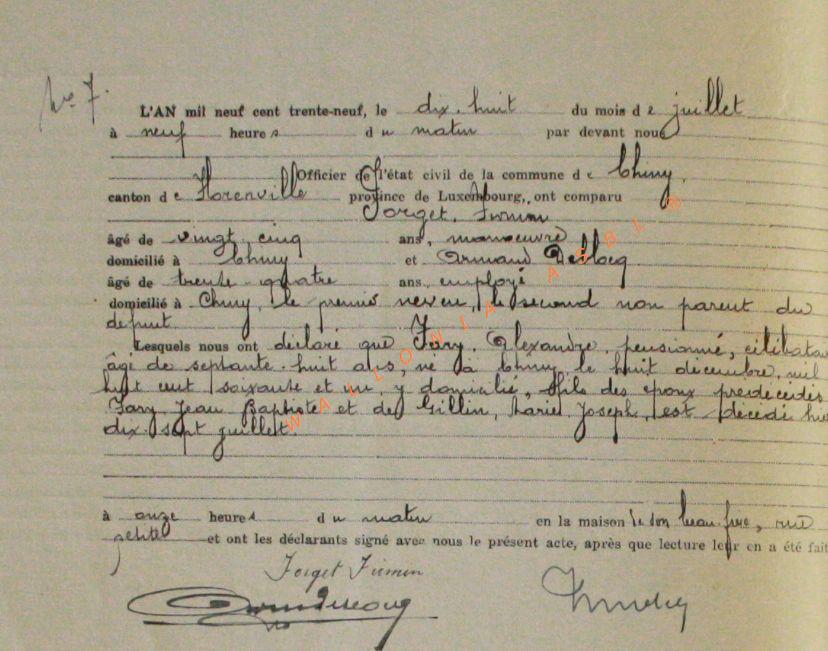 No 7.
L'AN mil neuf cent trente-neuf, le dix-huit du mois de juillet
à neuf heures du matin par devant nous
Officier de l'état civil de la commune de Chiny,
canton de Florenville province de Luxembourg, ont comparu
Forget, Firmin
âgé de vingt cinq ans, manoeuvre
domicilié à Chiny et Armand
âgé de trente-quatre ans, employé
domicilié à Chiny, le premier neveu, le second non parent du
défunt
Lesquels nous ont déclaré que Alexandre, pensionné,
âgé de septante-huit ans, né à Chiny, le huit décembre, mil
huit cent soixante et un, y domicilié, fils des époux prédécédés
Jean Baptiste et de Gillin, Marie Joseph, est décédé
dix sept juillet.
WALLONIA ASBL
à onze heures du matin en la maison de son beau frère, rue
et ont les déclarants signé avec nous le présent acte, après que lecture leur en a été fait
Forget Firmin